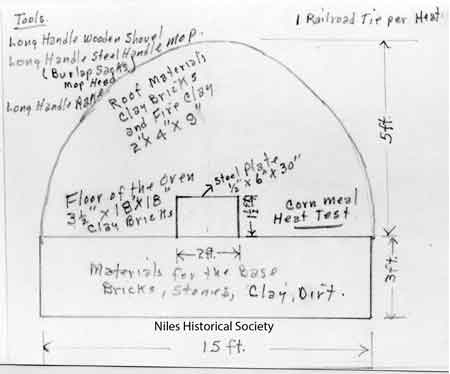 Tools
Long Handle Wooden Shovel
Long Handle Steel Handle mop.
(Burlap Sacks
Mop Head)
Long Handle Rake
1 Railroad Tie per Heat.
Roof Materials
Clay Bricks
and Fire Clay
2" x 4" x 9"
5 ft.
Floor of the Oven
3½" x 18" x 18"
Clay Bricks
Steel Plate
½" x 6" x 30"
1½ ft
Corn meal
Heat Test
2 ft.
3 ft.
Materials for the Base
Bricks, Stones, Clay, Dirt.
Niles Historical Society
15 ft.